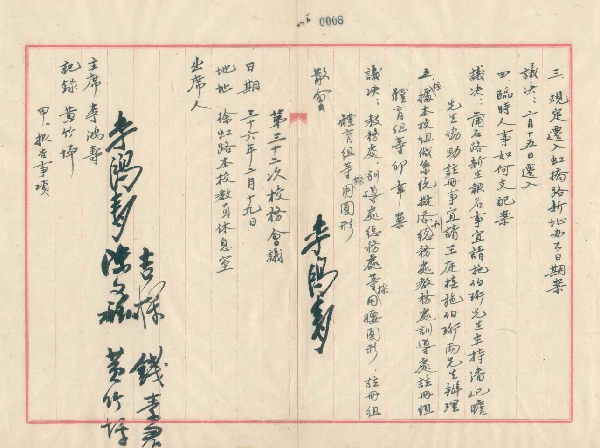 0008
三、規定遷入虹橋路新址办公日期案
議決：二月十五日遷入
四、臨時人事如何支配案
議決：蒲石路新生報名事宜請施伯珩先生主持潘
先生協助註冊事宜請王庭桂施伯珩兩先生辦理
五、據本校組織系統擬添刊總務處教務處訓導處註冊組
體育組等印章案
議決：教務處、訓導處總務處等採用腰圓形，註冊組
體育組等採用圓形
散會
李鴻壽
第三十二次校務會議
日期 三十六年二月十九日
地地 徐虹路本校教員休息室
出席人
李鴻壽
黃竹坪
主席 李鴻壽
記錄 黃竹坪
甲、報告事項